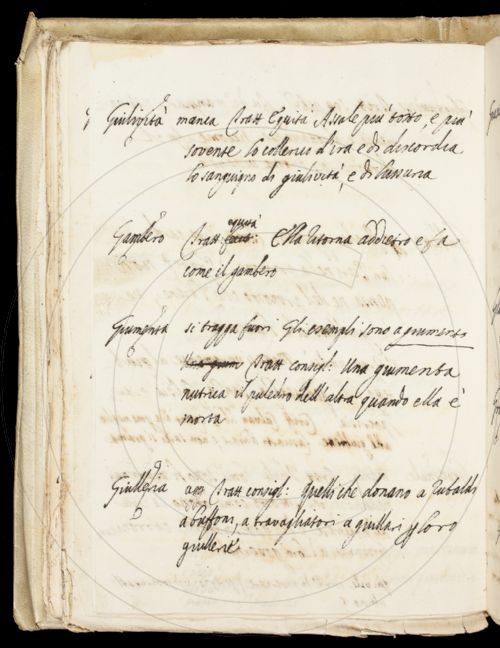 Giulività manca Tratt Equita Assale piu tosto, e piu
sovente lo collerico d'ira e di discordia
lo sanguigno di giulività, e di lussuria
Gambero Tratt equità Ella ritorna addietro e fa
come il gambero
Giumenta si tragga fuori Gli esempli sono a giumento
Tratt consigl: Una giumenta
nutrica il puledro dell'altra quando ella è
morta
Giulleria Tratt consigl: Quelli che donano a Rubaldi
a buffoni, a travagliatori a giullari p loro
giullerie